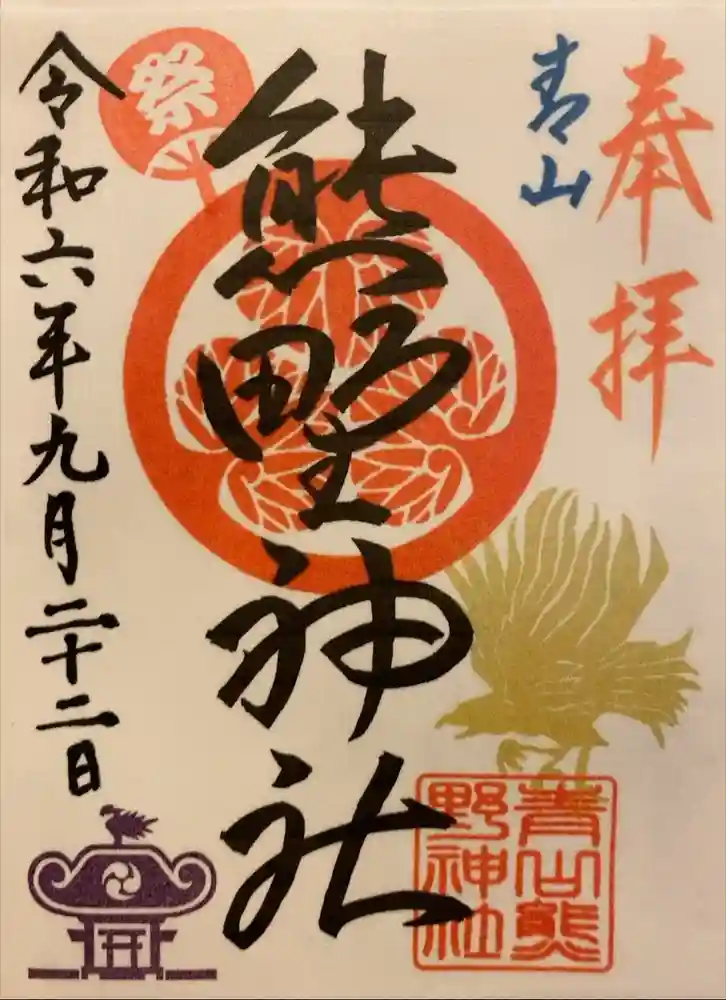 奉拝
青山
熊野神社
祭
令和六年九月二十二日
青山熊
野神社